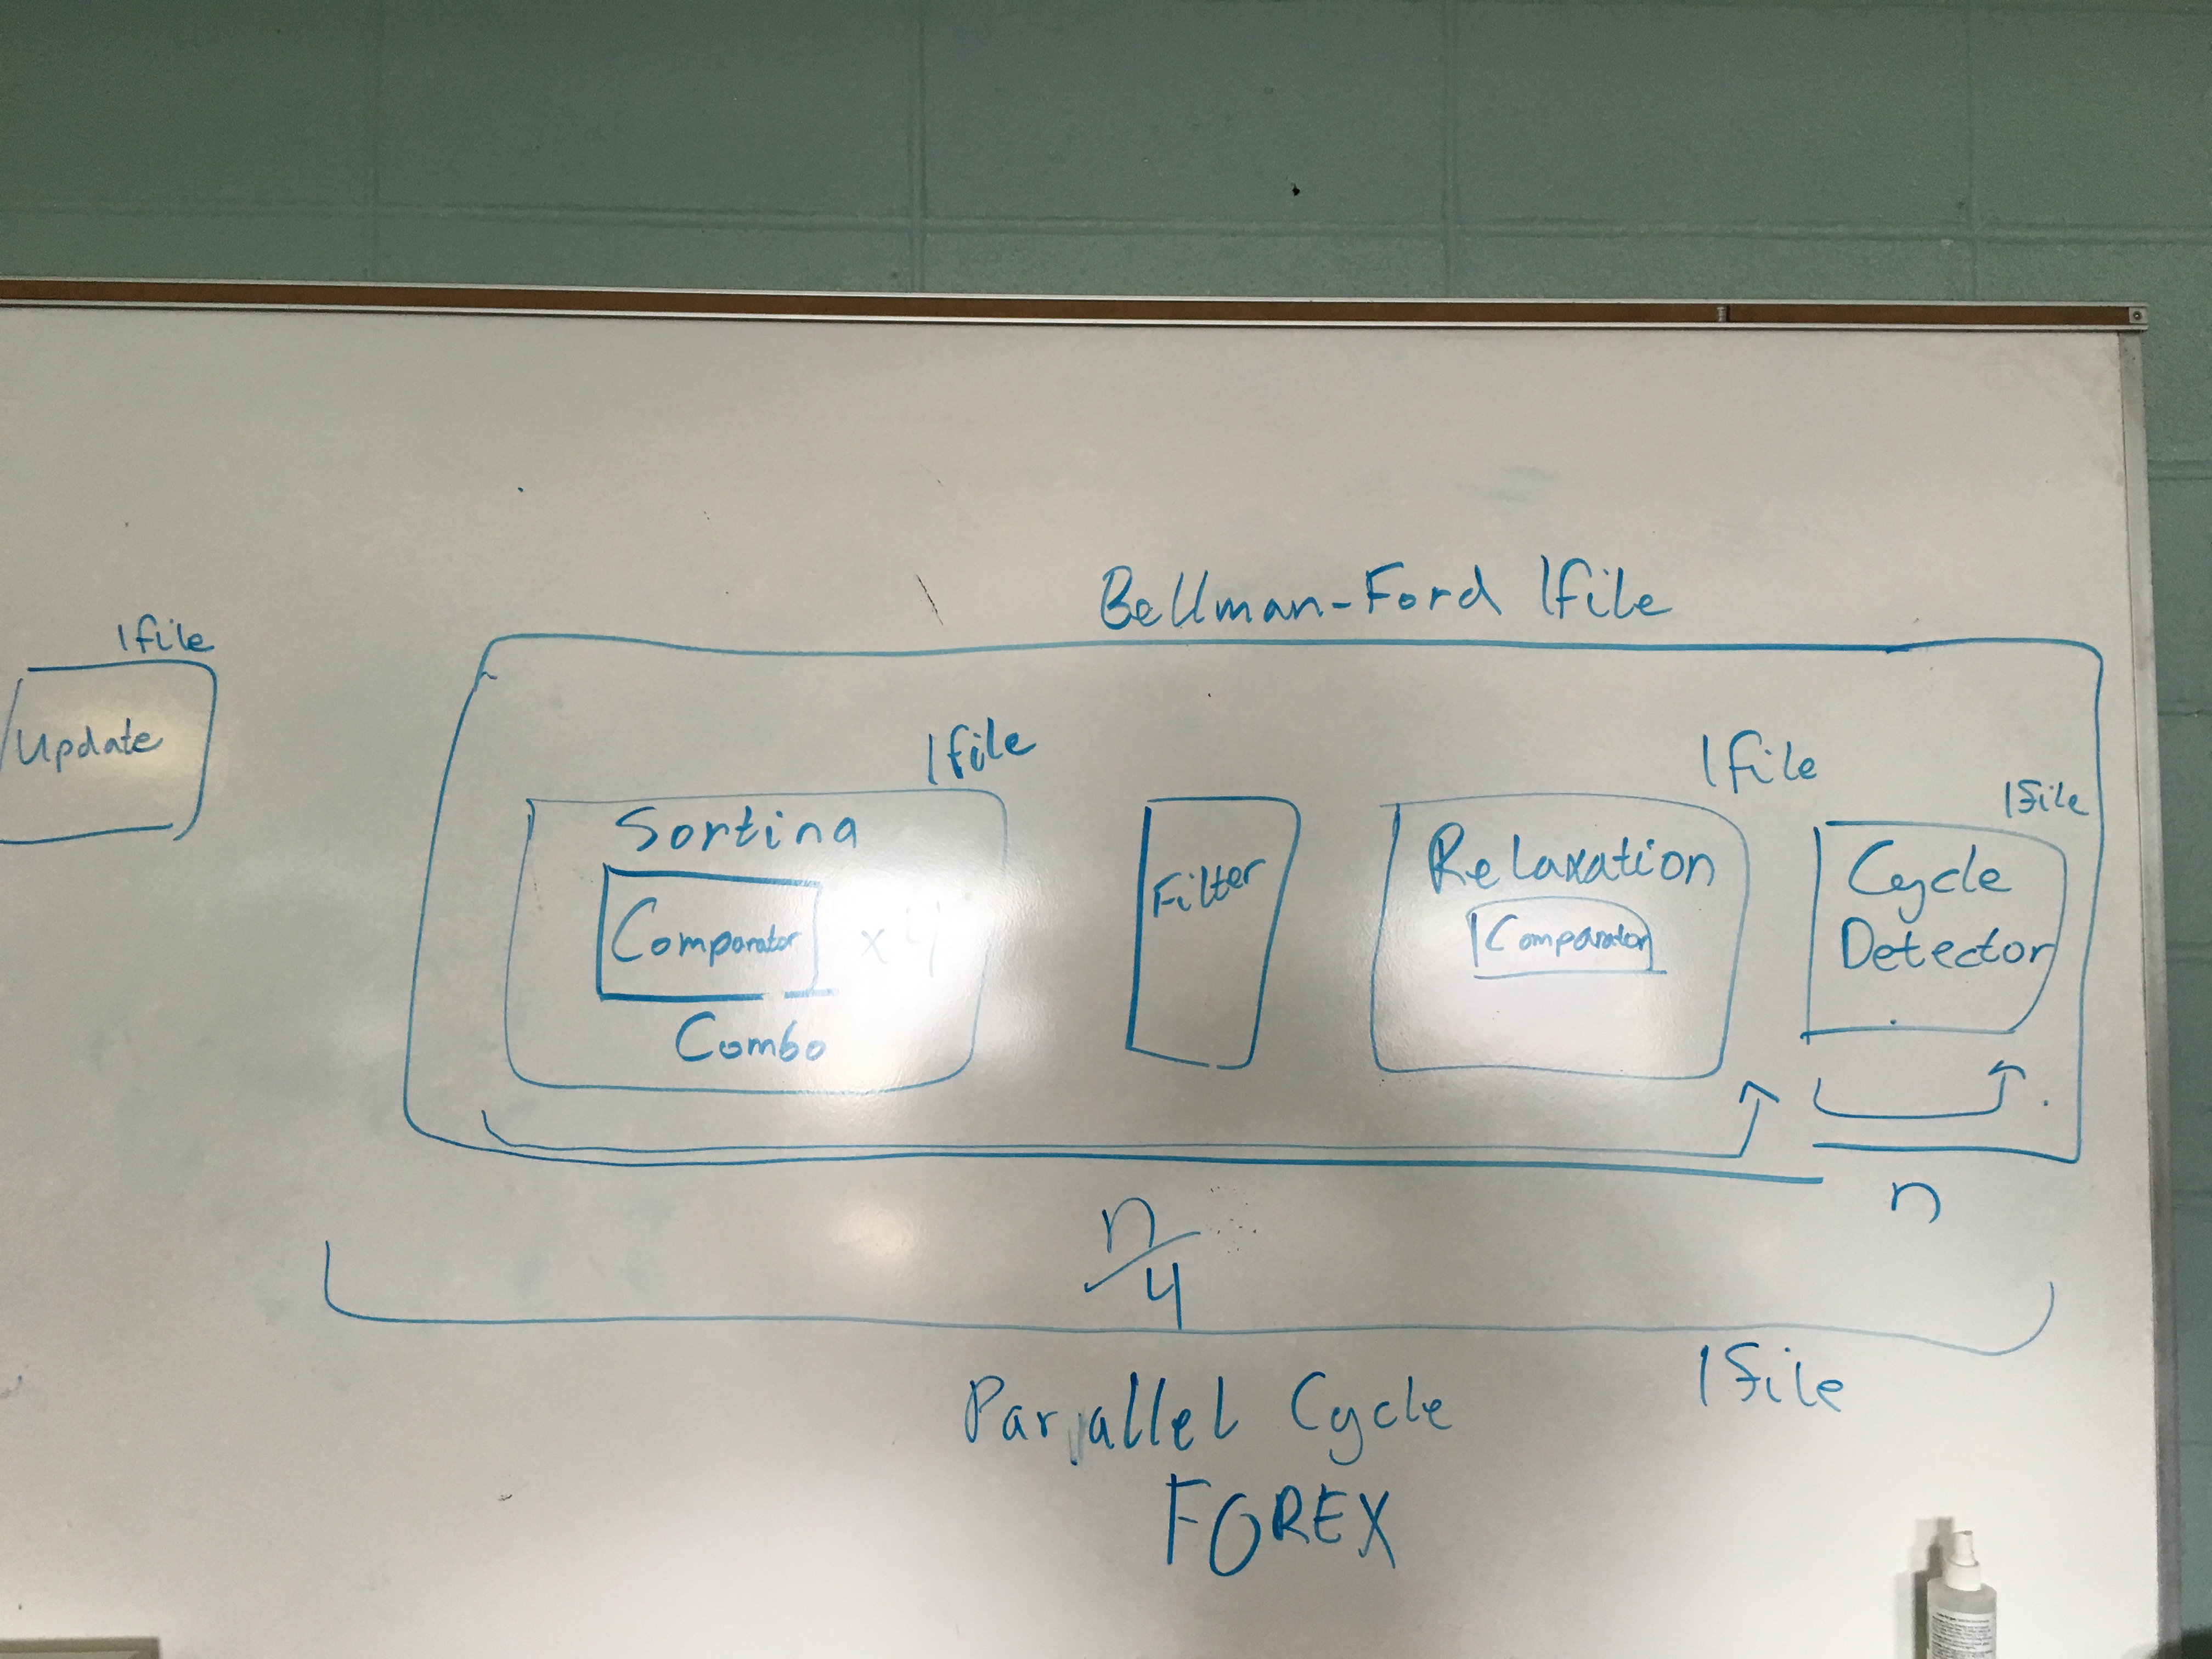 Bellman-Ford 1file
1file
Update
1file
Sorting
Comparator x 4
Combo
Filter
1file
Relaxation
Comparator
1file
Cycle
Detector
n
n/4
1file
Parallel Cycle
FOREX